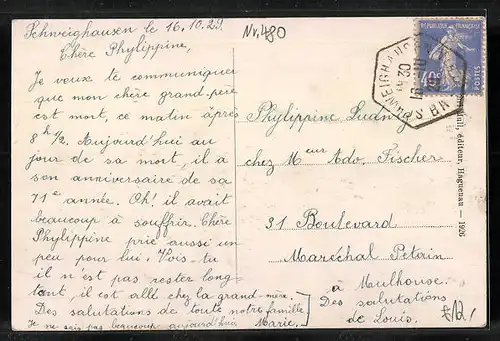 Schweighausen le 16.10.29.
Chère Phylippine,
Je veux te communiquer
que mon chère grand-père
est mort, ce matin âprès
8 h 1/2. Aujourd'hui au
jour de sa mort, il a
son anniversaire de sa
71e année. Oh! il avait
beaucoup à souffrir. Chère
Phylippine prie aussi un
peu pour lui. Vois-tu
il n'est pas rester long
tant, il est allé chez la grand-mère.
Des salutations de toute notre famille
Je ne sais pas beaucoup aujourd'hui Marie.
Nr. 480
Phylippine Ludwig
chez Meur Ado. Fischer
31 Boulevard
Maréchal Petain
à Mulhouse.
Des salutations
de Louis.
éditeur, Haguenau — 1926